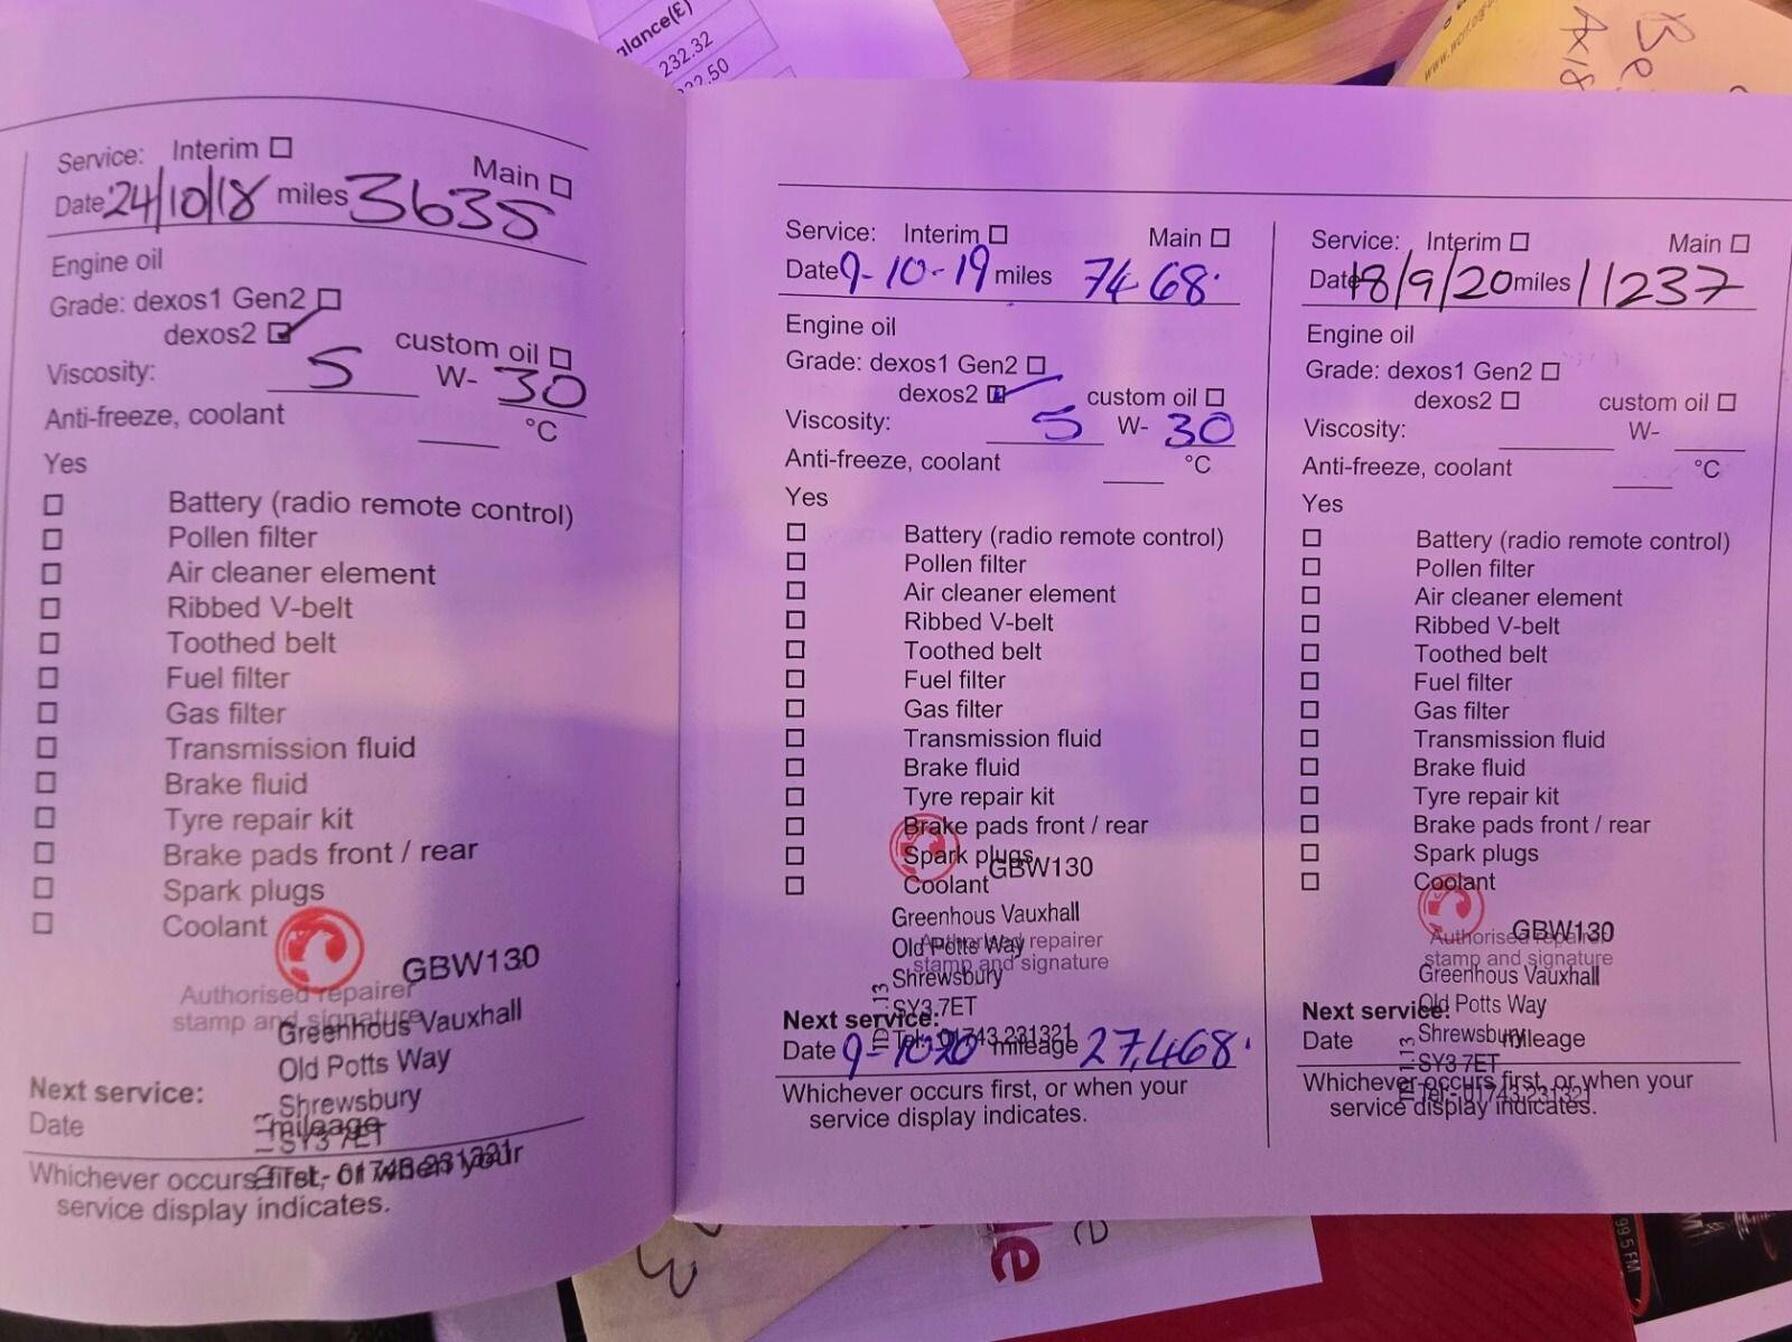 alance(£)
232.32
Service: Interim ☐ Main ☐
Date 24/10/18 miles 3635
Engine oil
Grade: dexos1 Gen2 ☐
dexos2 ☑ custom oil ☐
Viscosity: 5 W- 30
Anti-freeze, coolant ____ °C
Yes
☐ Battery (radio remote control)
☐ Pollen filter
☐ Air cleaner element
☐ Ribbed V-belt
☐ Toothed belt
☐ Fuel filter
☐ Gas filter
☐ Transmission fluid
☐ Brake fluid
☐ Tyre repair kit
☐ Brake pads front / rear
☐ Spark plugs
☐ Coolant
GBW130
Authorised repairer
stamp and signature
Greenhous Vauxhall
Old Potts Way
Shrewsbury
SY3 7ET
Tel:- 01743 231321
Next service:
Date mileage
Whichever occurs first, or when your
service display indicates.
Service: Interim ☐ Main ☐
Date 9-10-19 miles 7468.
Engine oil
Grade: dexos1 Gen2 ☐
dexos2 ☑ custom oil ☐
Viscosity: 5 W- 30
Anti-freeze, coolant ____ °C
Yes
☐ Battery (radio remote control)
☐ Pollen filter
☐ Air cleaner element
☐ Ribbed V-belt
☐ Toothed belt
☐ Fuel filter
☐ Gas filter
☐ Transmission fluid
☐ Brake fluid
☐ Tyre repair kit
☐ Brake pads front / rear
☐ Spark plugs
☐ Coolant
GBW130
Greenhous Vauxhall
Old Potts Way
Shrewsbury
SY3 7ET
Tel:- 01743 231321
Authorised repairer
stamp and signature
Next service:
Date 9-10-20 mileage 27,468.
Whichever occurs first, or when your
service display indicates.
Service: Interim ☐ Main ☐
Date 18/9/20 miles 11237
Engine oil
Grade: dexos1 Gen2 ☐
dexos2 ☐ custom oil ☐
Viscosity: ____ W- ____
Anti-freeze, coolant ____ °C
Yes
☐ Battery (radio remote control)
☐ Pollen filter
☐ Air cleaner element
☐ Ribbed V-belt
☐ Toothed belt
☐ Fuel filter
☐ Gas filter
☐ Transmission fluid
☐ Brake fluid
☐ Tyre repair kit
☐ Brake pads front / rear
☐ Spark plugs
☐ Coolant
GBW130
Authorised repairer
stamp and signature
Greenhous Vauxhall
Old Potts Way
Shrewsbury
SY3 7ET
Tel:- 01743 231321
Next service:
Date mileage
Whichever occurs first, or when your
service display indicates.
99.5 FM